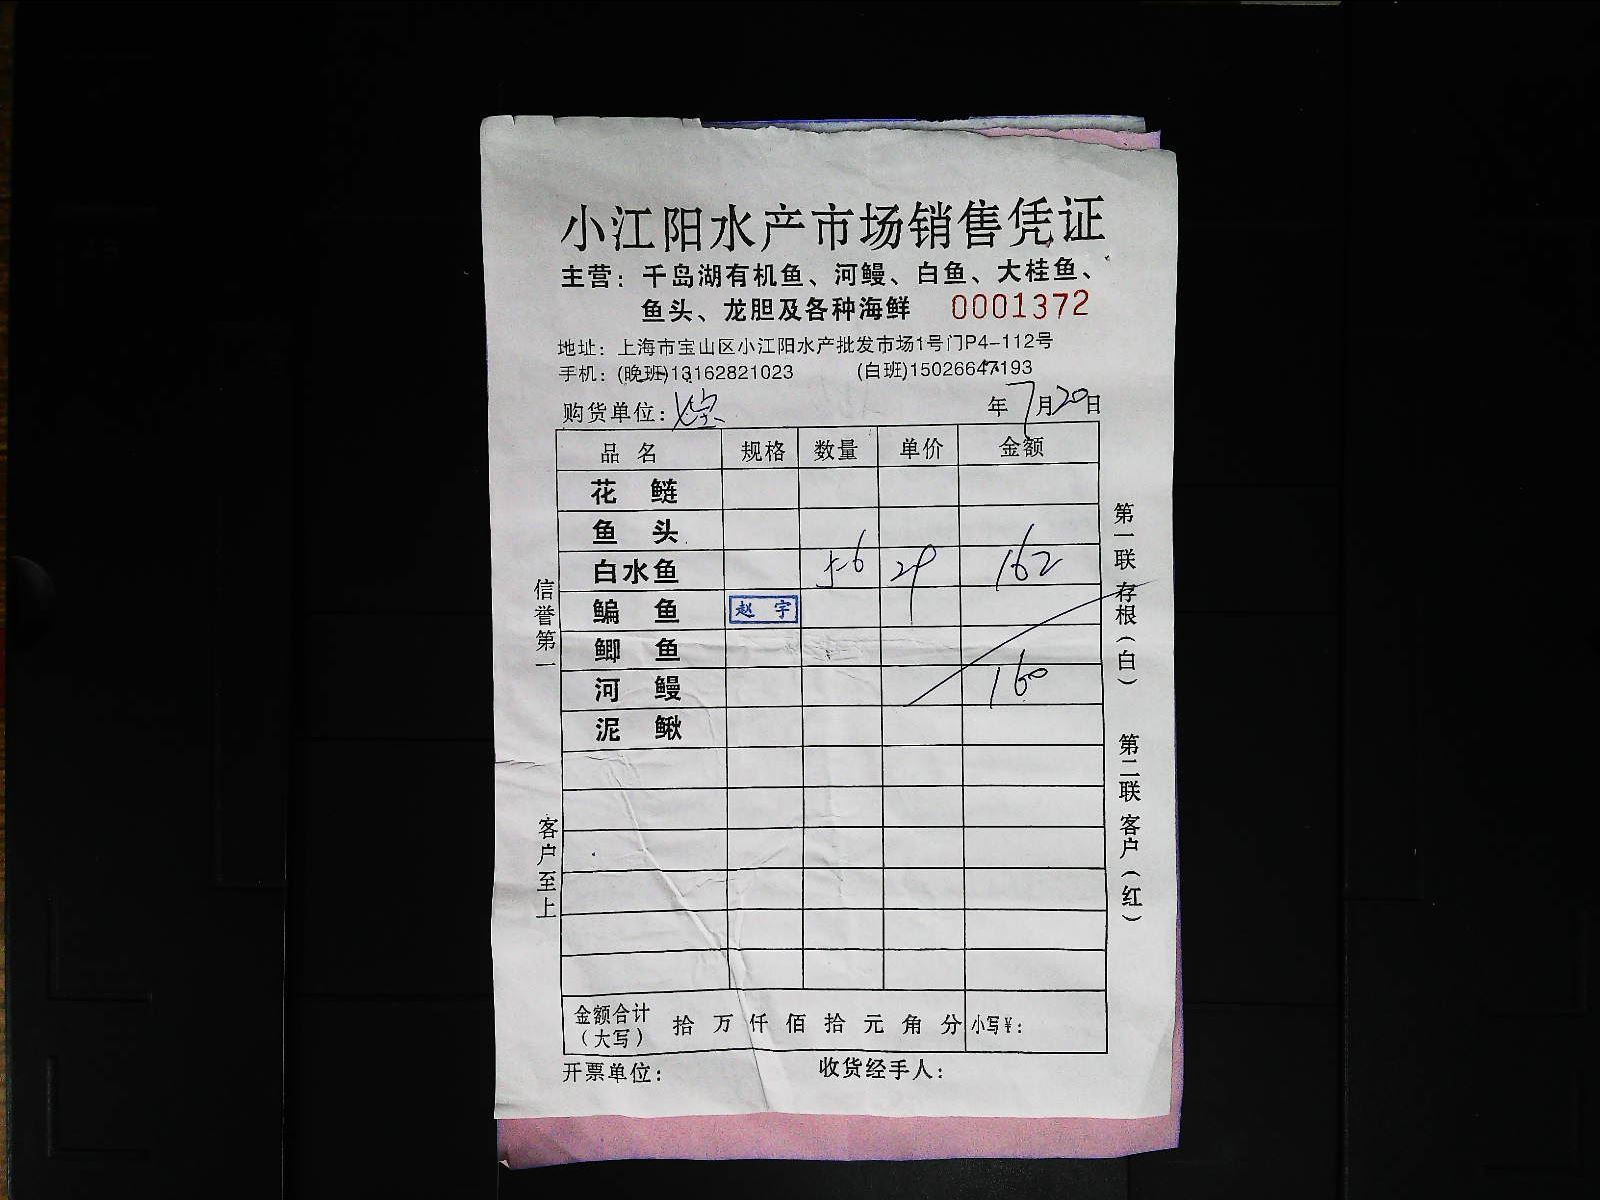 小江阳水产市场销售凭证
主营：千岛湖有机鱼、河鳗、白鱼、大桂鱼、
鱼头、龙胆及各种海鲜 0001372
地址：上海市宝山区小江阳水产批发市场1号门P4-112号
手机：(晚班)13162821023 (白班)15026647193
购货单位： 年7月20日
品名 规格 数量 单价 金额
花鲢
鱼头
白水鱼 5-6 29 162
鳊鱼 赵宇
鲫鱼
河鳗 160
泥鳅
金额合计（大写） 拾万仟佰拾元角分 小写￥：
开票单位： 收货经手人：
信誉第一
客户至上
第一联 存根（白）
第二联 客户（红）